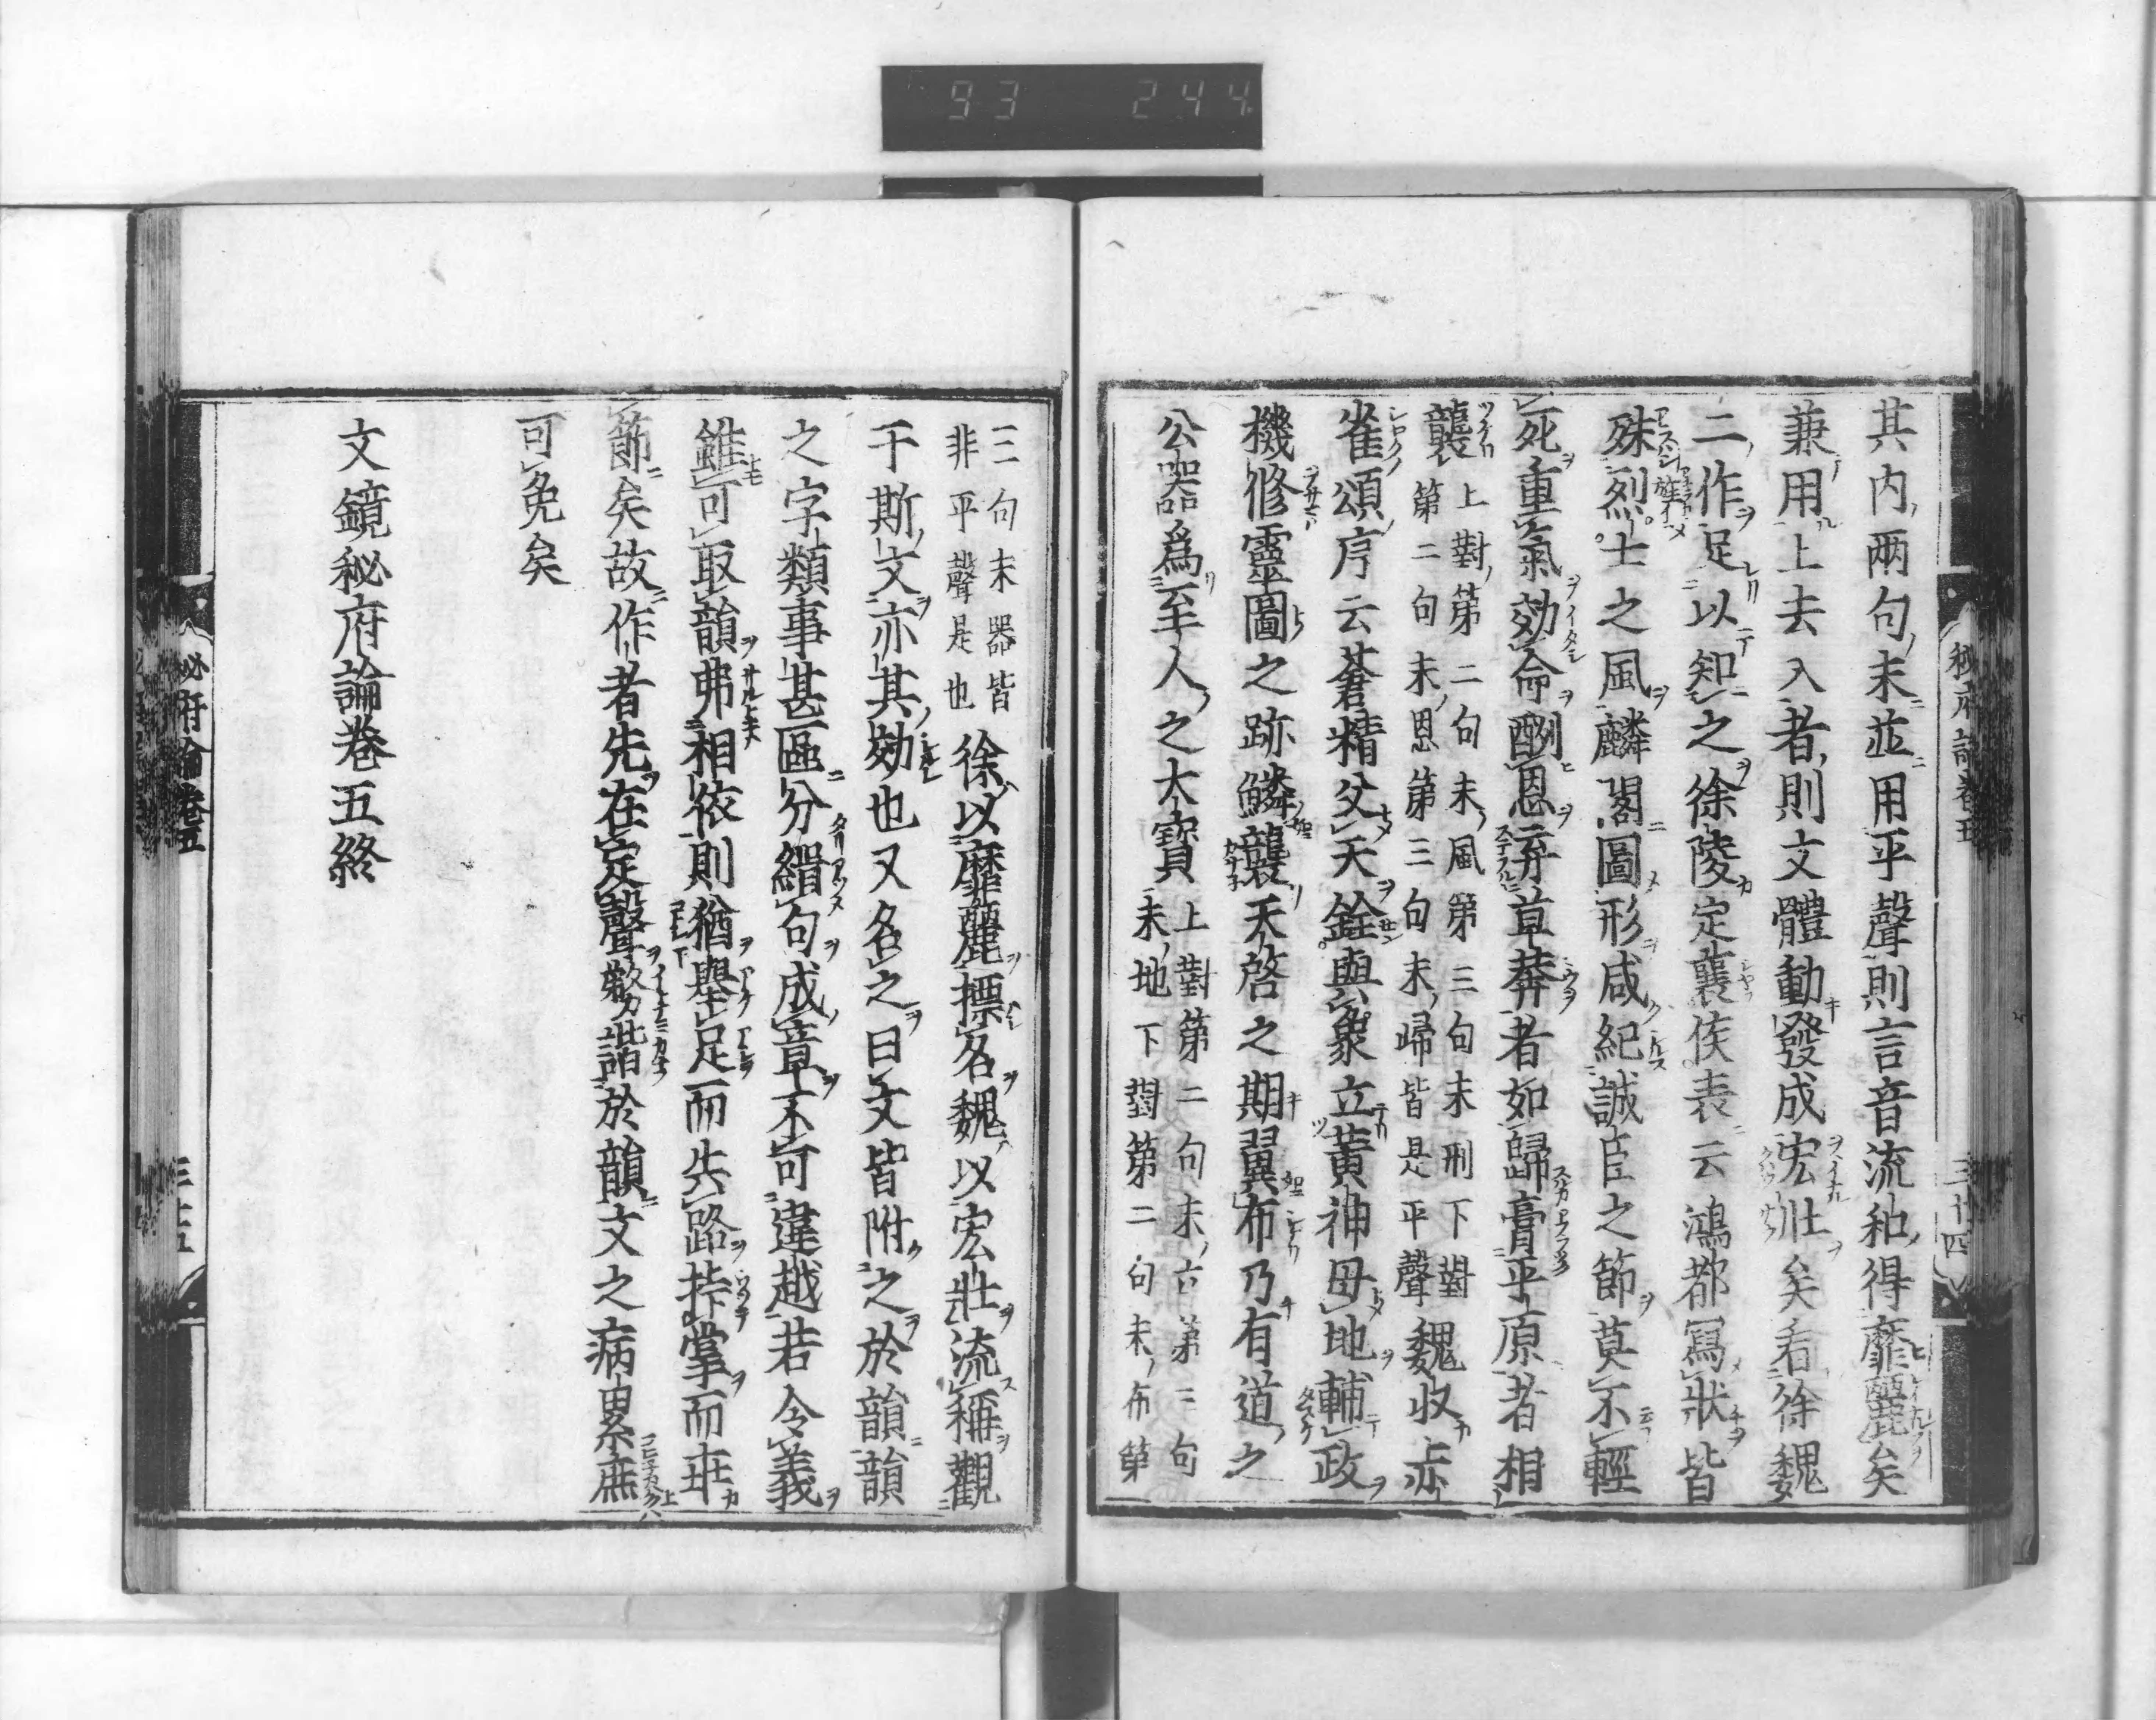 93 244
秘府論卷五
三十四
其内兩句末並用平聲則言音流和得靡麗矣
兼用上去入者則文體動發成宏壯矣看徐魏
二作足以知之徐陵定襄侯表云鴻都寫狀皆
殊烈士之風麟閣圖形咸紀誠臣之節莫不輕
死重氣効命酬恩弃草莽者如歸膏平原者相
襲
上對第二句末風第三句末刑下對
第二句末恩第三句末歸皆是平聲
魏收赤
雀頌序云蒼精父天銓與象立黃神母地輔政
機修靈圖之跡鱗襲天啓之期翼布乃有道之
公器爲至人之大寶
上對第二句末立第三句
末地下對第二句末布第
三句末器皆
非平聲是也
徐以靡麗標名魏以宏壯流稱觀
于斯文亦其効也又名之曰文皆附之於韻韻
之字類事甚區分緝句成章不可違越若令義
雖可取韻弗相依則猶擧足而失路挊掌而乖
節矣故作者先在定聲務諧於韻文之病累庶
可免矣
文鏡秘府論卷五終
秘府論卷五
三十五